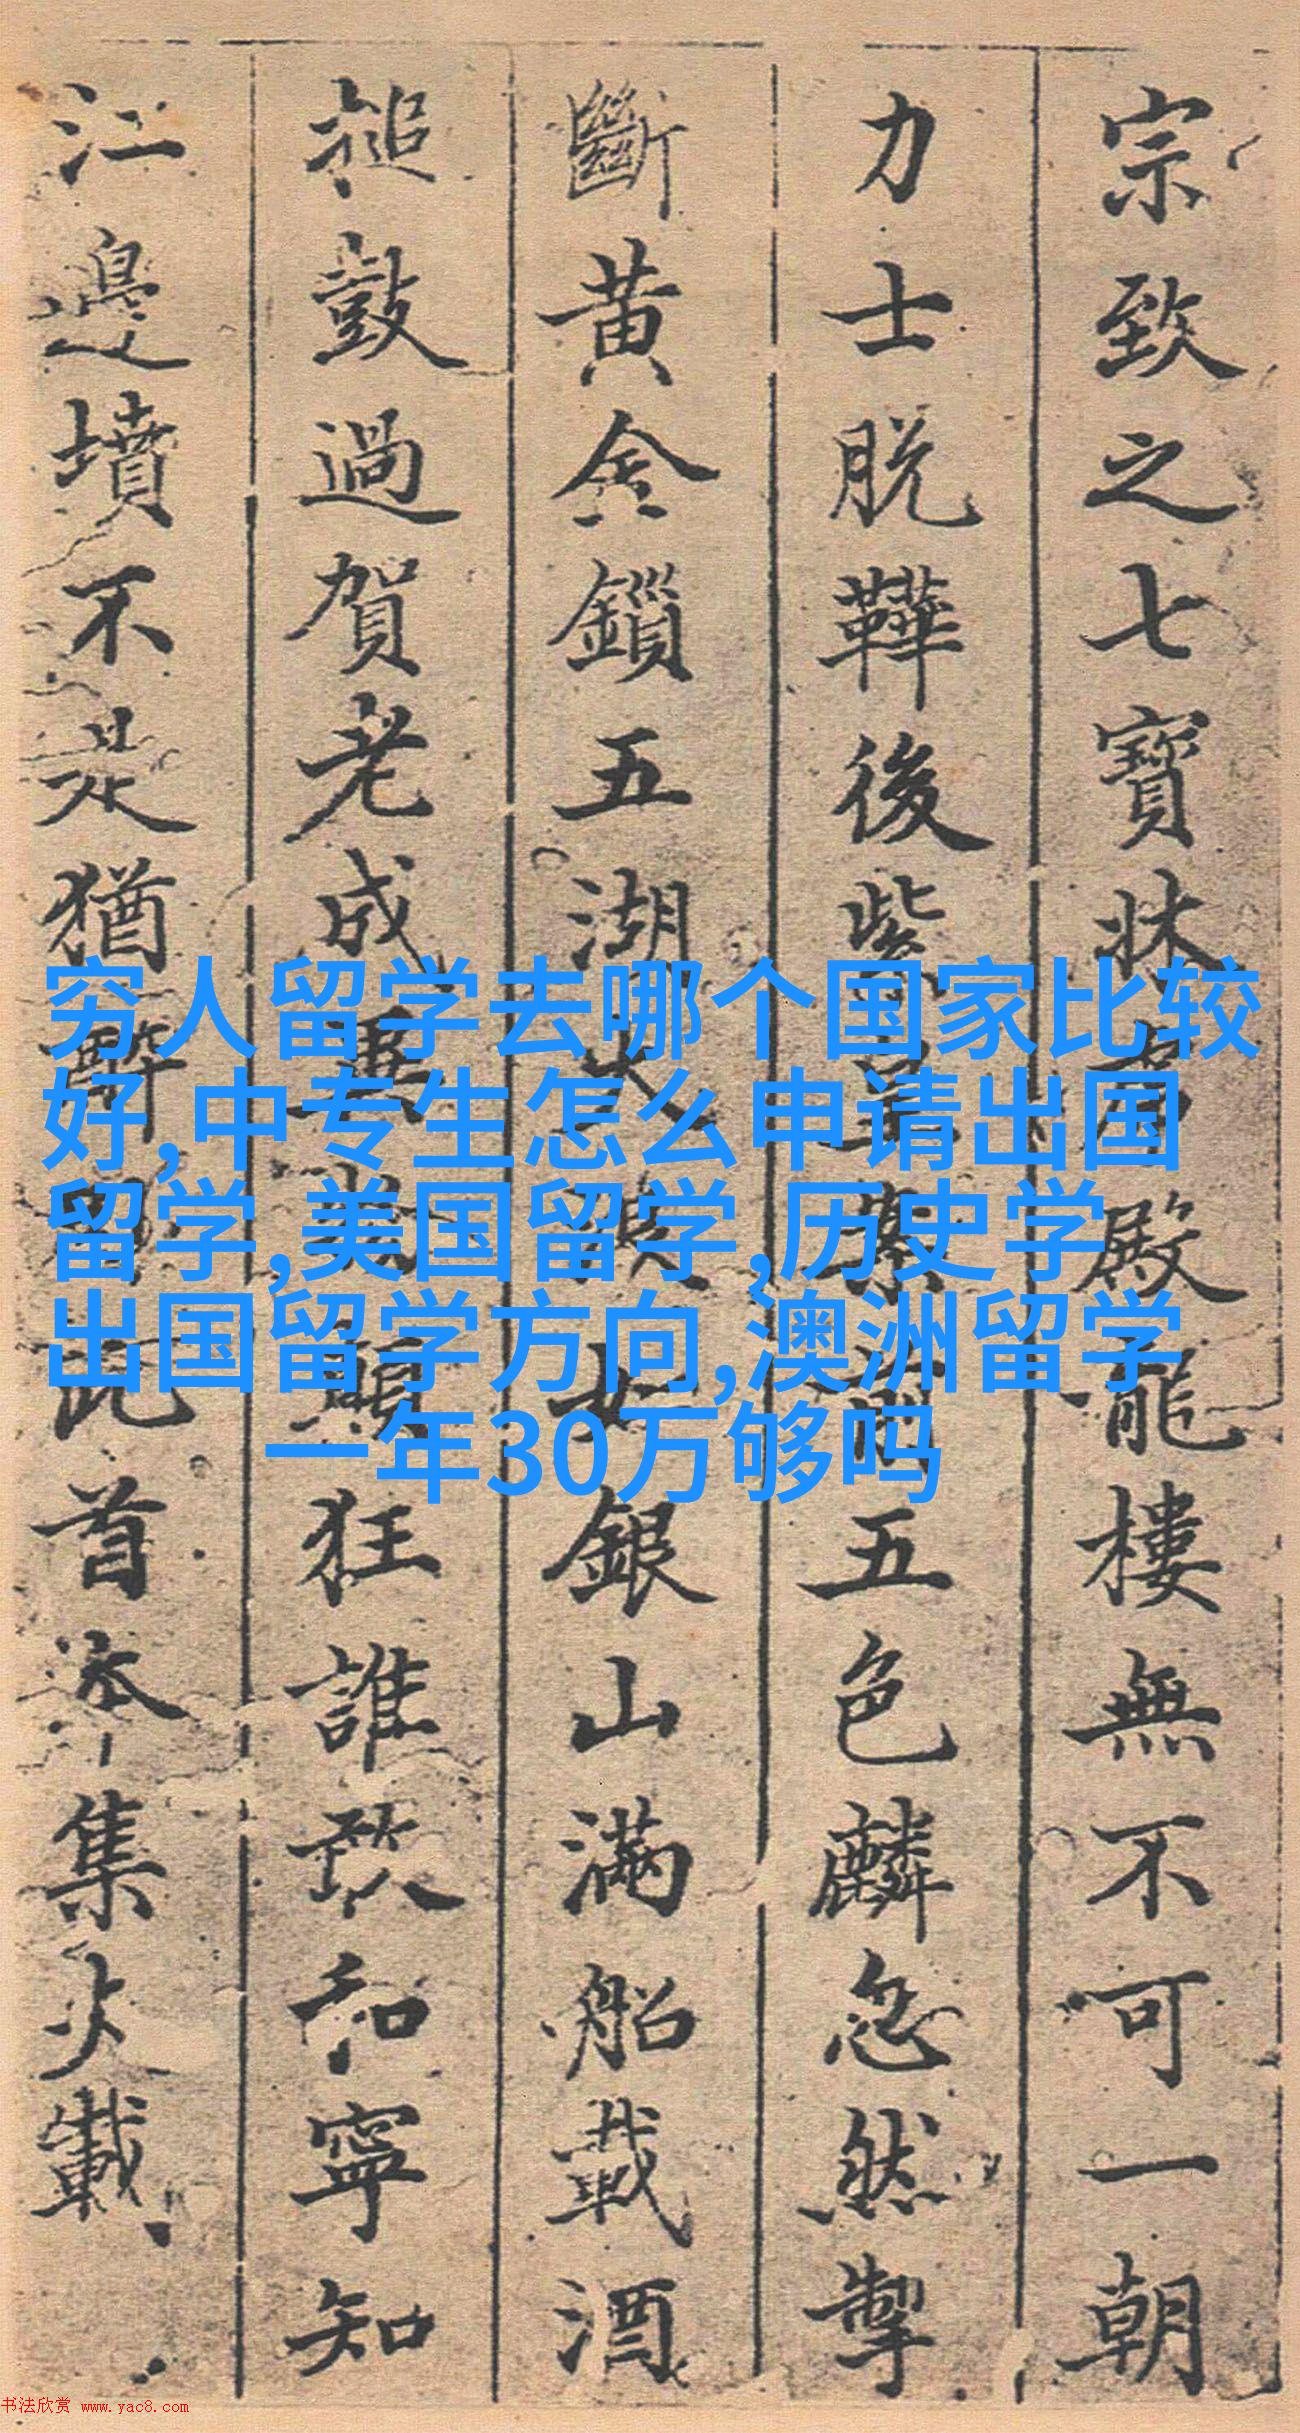 宗致之七寶牀虎殿龍樓無不可一朝
力士脱鞾後紫五色麟忽然掣
斷黄金鎖五湖大浪如銀山滿船載酒
撾鼓過賀老成異物狂誰敢和寧知
江邊墳不是猶醉此首本集少載
穷人留学去哪个国家比较
好,中专生怎么申请出国
留学,美国留学,历史学
出国留学方向,澳洲留学
一年30万够吗
书法欣赏 www.yac8.com